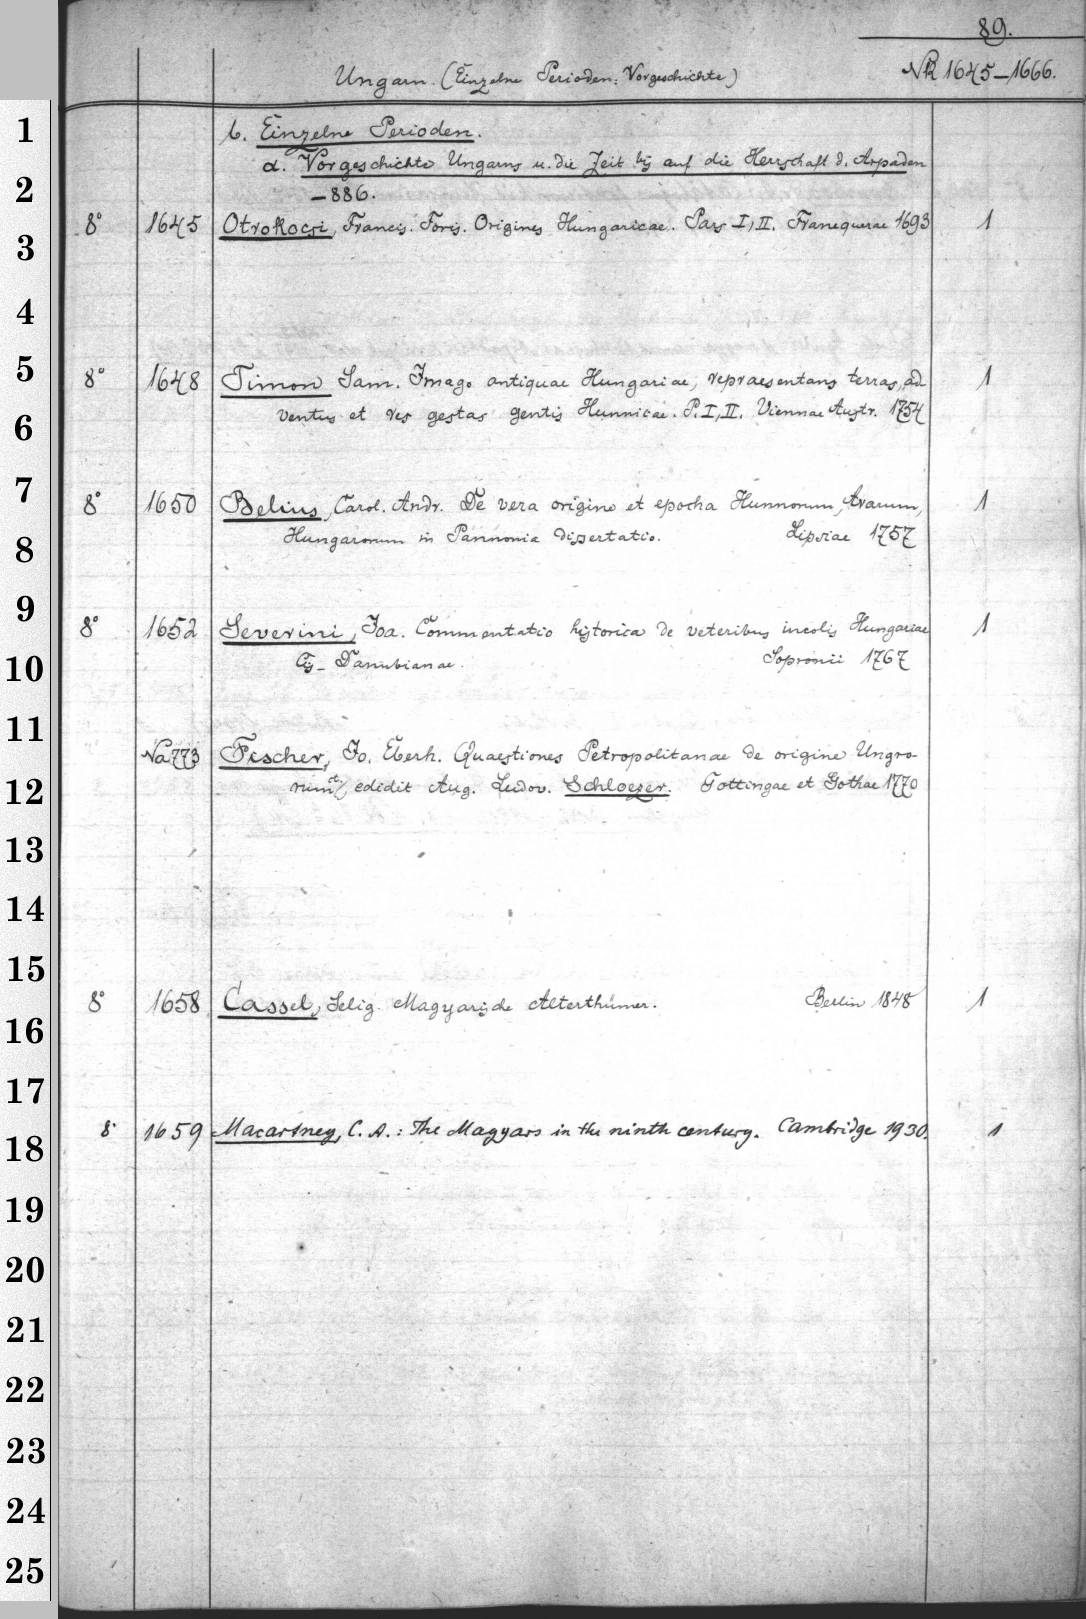 89.
Ungarn. (Einzelne Perioden: Vorgeschichte)
NR 1645–1666.
b. Einzelne Perioden.
α. Vorgeschichte Ungarns u. die Zeit bis auf die Herrschaft d. Arpaden
–886.
8° 1645 Otrokocsi, Francis. Foris. Origines Hungaricae. Pars I, II. Franequerae 1693 1
8° 1648 Timon Sam. Imago antiquae Hungariae, repraesentans terras, ad
ventus et res gestas gentis Hunnicae. P. I, II. Viennae Austr. 1754 1
8° 1650 Belius, Carol. Andr. De vera origine et epocha Hunnorum, Avarum,
Hungarorum in Pannonia dissertatio. Lipsiae 1757 1
8° 1652 Severini, Joa. Commentatio historica de veteribus incolis Hungariae
Cis-Danubianae. Sopronii 1767 1
Na 773 Fischer, Jo. Eberh. Quaestiones Petropolitanae de origine Ungro-
rum etc, edidit Aug. Ludov. Schloezer. Gottingae et Gothae 1770
8° 1658 Cassel, Selig. Magyarische Alterthümer. Berlin 1848 1
8° 1659 Macartney, C. A.: The Magyars in the ninth century. Cambridge 1930. 1
1
2
3
4
5
6
7
8
9
10
11
12
13
14
15
16
17
18
19
20
21
22
23
24
25